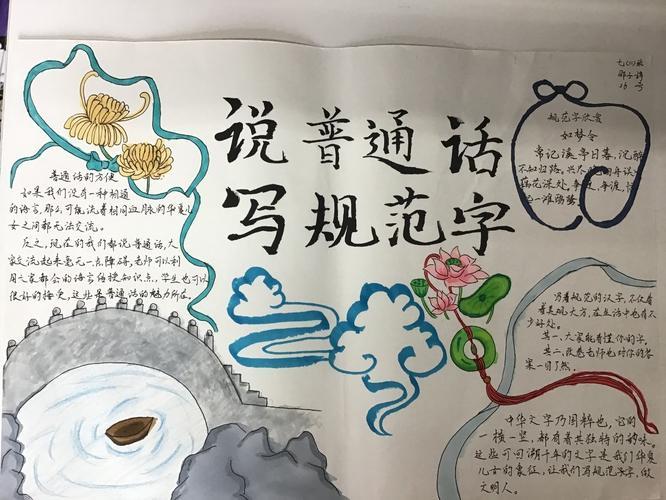 说普通话
写规范字
普通话的方便
如果我们没有一种相通
的语言，那么可能流着相同血脉的华夏儿
女之间都无法交流。
反之，现在的我们都说普通话，大
家交流起来毫无一点障碍，老师可以利
用大家都会的语言传授知识点，学生也可以
很好的接受，这些是普通话的魅力所在。
16号
规范字欣赏
如梦令
常记溪亭日暮，沉醉
不知归路。兴尽
藕花深处。争渡，争渡，
一滩鸥鹭
写着规范的汉字，不仅看
着美观大方，在生活中也有不
少好处。
其一、大家能看懂你的字。
其二、改卷老师也对你的答
案一目了然。
中华文字乃国粹也，它的
一横一竖，都有着其独特的韵味。
这些可回溯千年的文字是我们华夏
儿女的象征，让我们写规范汉字，做
文明人。